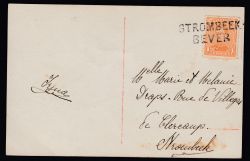 STROMBEEK-
BEVER
Irma
Melle Marie et Melanie
Draps - Rue de Villegas
de Clercamp.
Strombeek